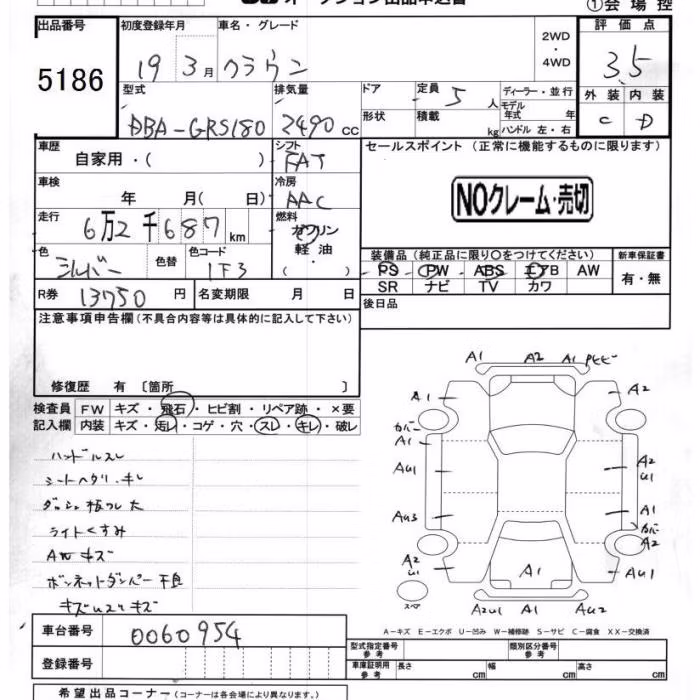 ①会場控
出品番号 初度登録年月 車名・グレード 2WD・4WD 評価点
5186 19年3月 クラウン 3.5
型式 排気量 ドア 定員 ディーラー・並行 外装 内装
DBA-GRS180 2490cc 形状 積載 5人 kg モデル年式 年 ハンドル 左・右 C D
車歴 自家用・( ) シフト FAT セールスポイント (正常に機能するものに限ります)
車検 年 月( 日) 冷房 AAC NOクレーム・売切
走行 6万2千687km 燃料 ガソリン 軽油 ・( )
色 シルバー 色替 色コード 1F3 装備品 (純正品に限り〇をつけてください) 新車保証書
PS PW ABS エアB AW 有・無
R券 13750円 名変期限 月 日 SR ナビ TV カワ
注意事項申告欄 (不具合内容等は具体的に記入して下さい) 後日品
修復歴 有 〔箇所 〕
検査員 FW キズ・飛石・ヒビ割・リペア跡・×要
記入欄 内装 キズ・汚レ・コゲ・穴・スレ・キレ・破レ
ハンドルスレ
シートヘタリ・キレ
ライトくすみ
AWキズ
ボンネットダンパー不良
A1 A2 A1
A1 A2
カバー
A1
AU1 A2
U1
AU3 A1
カバー
A2 A2
U1 A1 AU1
スペア
A2U1 A1 AU2
A-キズ E-エクボ U-凹み W-補修跡 S-サビ C-腐食 XX-交換済
車台番号 0060954
登録番号
型式指定番号 参考 類別区分番号 参考
車庫証明用 参考 長さ cm 幅 cm 高さ cm
希望出品コーナー (コーナーは各会場により異なります。)